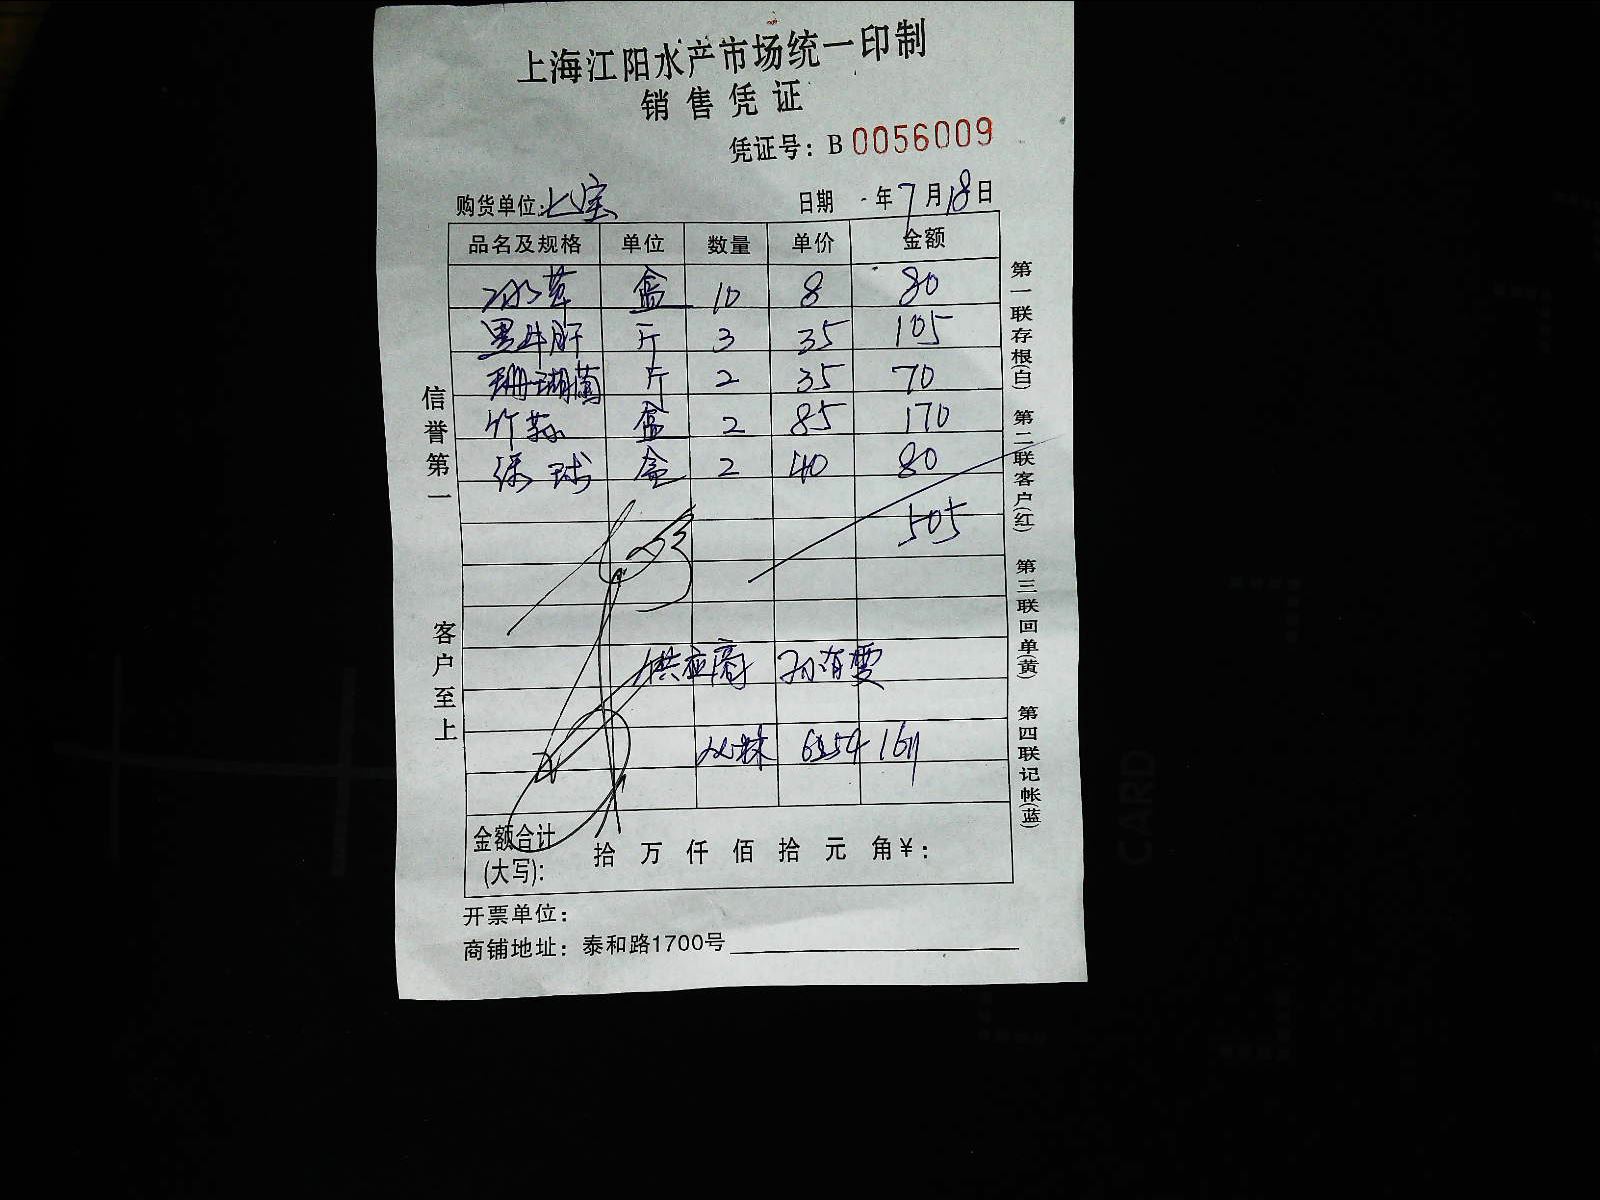 上海江阳水产市场统一印制
销售凭证
凭证号：B 0056009
购货单位：七宝 日期 年7月18日
品名及规格 单位 数量 单价 金额
冰草 盒 10 8 80
黑牛肝 斤 3 35 105
珊瑚菌 斤 2 35 70
竹荪 盒 2 85 170
绿球 盒 2 40 80
505
供应商 孙有雯
金额合计
(大写)： 拾 万 仟 佰 拾 元 角￥：
开票单位：
商铺地址：泰和路1700号
信誉第一
客户至上
第一联存根(白)
第二联客户(红)
第三联回单(黄)
第四联记帐(蓝)
CARD